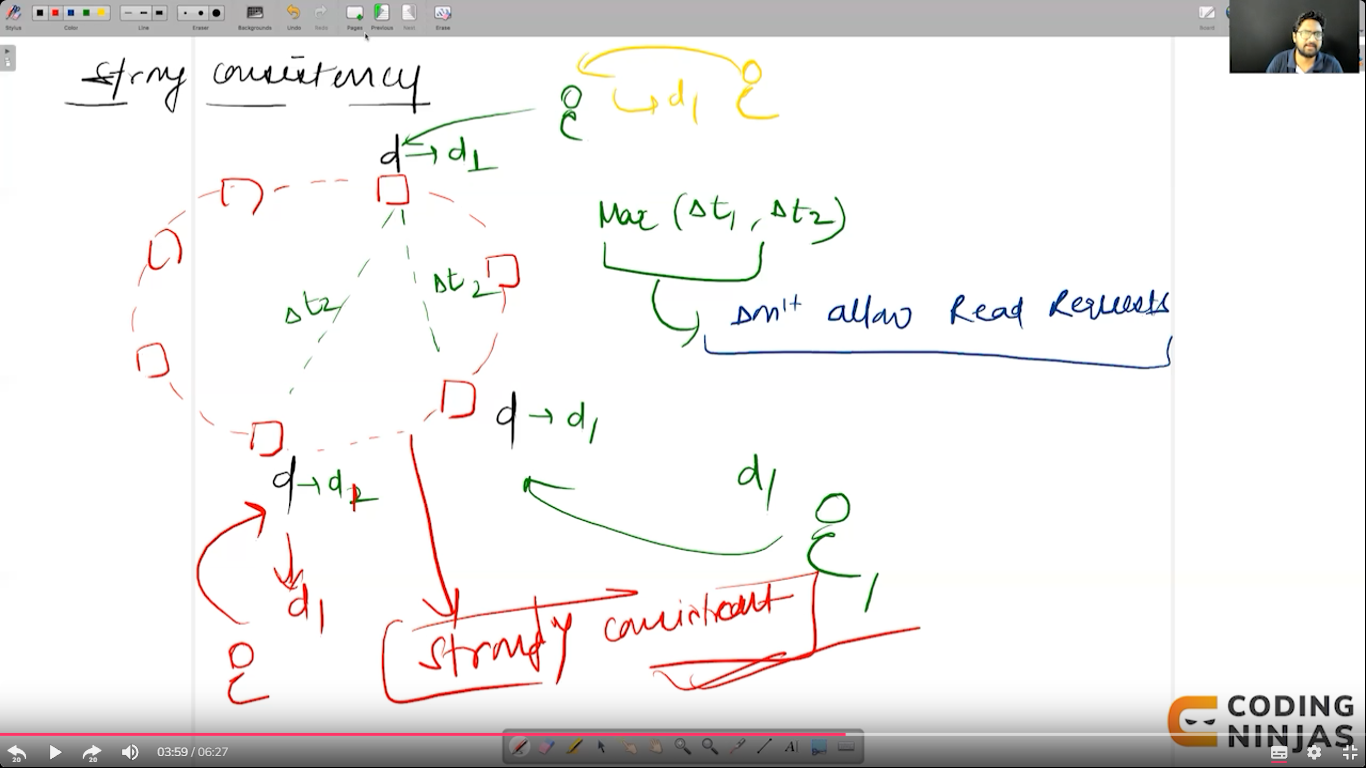 Stylus
Color
Line
Eraser
Backgrounds
Undo
Redo
Pages
Previous
Next
Erase
Board
Strong consistency
d1
d → d1
Max (Δt1, Δt2)
Δt2
Δt2
Don't allow Read Requests
d → d1
d →
d1
d1
Strongly consistent
CODING
NINJAS
20
20
03:59 / 06:27